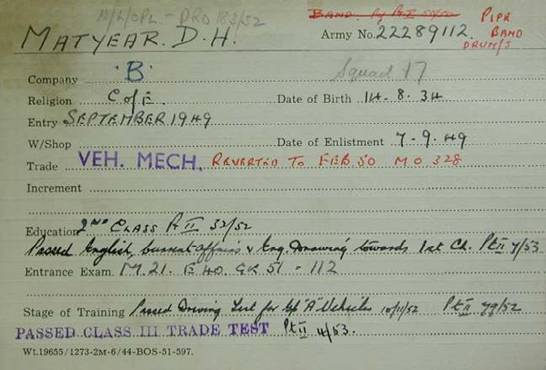 A/L/CPL - DRO 183/52
BAND. Pt II
PIPE BAND DRUM/S
MATYEAR. D. H. Army No. 22289112
Company 'B' Squad 17
Religion C of E. Date of Birth 14. 8. 34
Entry SEPTEMBER 1949
W/Shop Date of Enlistment 7-9.49
Trade VEH. MECH. REVERTED TO FEB 50 M O 328
Increment
Education 2ND CLASS PT II 32/52
Passed English, Current Affairs & Eng. Drawing towards 1st Cl. Pt II 7/53
Entrance Exam. M. 21. E 40. GK 51 - 112
Stage of Training Passed Driving Test for Gp 'A' Vehicles 10/11/52 Pt II 79/52
PASSED CLASS III TRADE TEST Pt II 4/53.
Wt.19655/1273-2M-6/44-BOS-51-597.